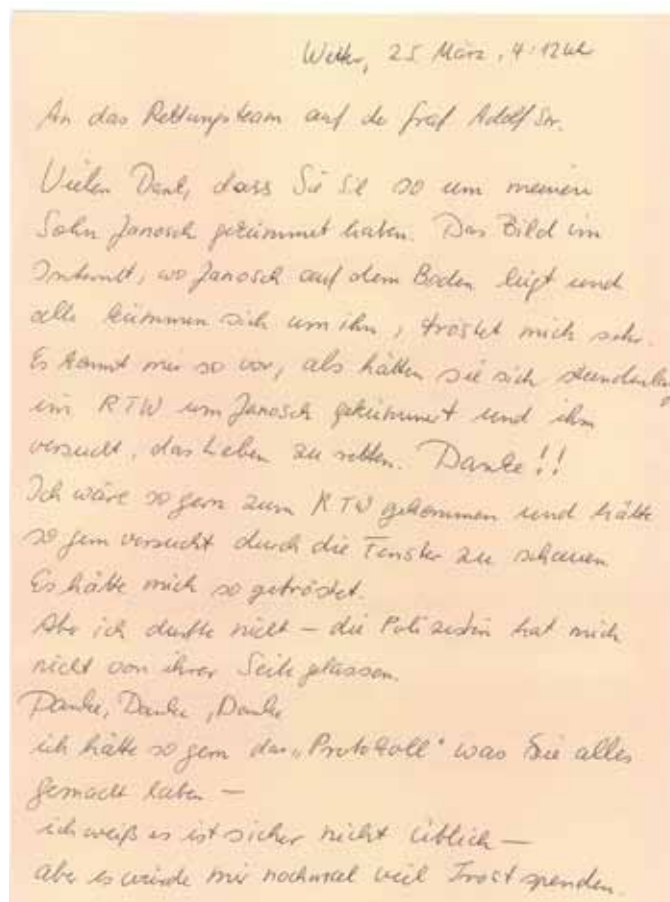 Wetter, 25 März, 4:12 Uhr
An das Rettungsteam auf de Graf Adolf Str.
Vielen Dank, dass Sie sich so um meinen
Sohn Janosch gekümmert haben. Das Bild im
Internet, wo Janosch auf dem Boden liegt und
alle kümmern sich um ihn, tröstet mich sehr.
Es kommt mir so vor, als hätten sie sich stundenlang
im RTW um Janosch gekümmert und ihm
versucht, das Leben zu retten. Danke!!
Ich wäre so gern zum RTW gekommen und hätte
so gern versucht durch die Fenster zu schauen
Es hätte mich so getröstet.
Aber ich durfte nicht – die Polizistin hat mich
nicht von ihrer Seite gelassen.
Danke, Danke, Danke
ich hätte so gern das „Protokoll" was Sie alles
gemacht haben –
ich weiß es ist sicher nicht üblich –
aber es würde mir nochmal viel Trost spenden.